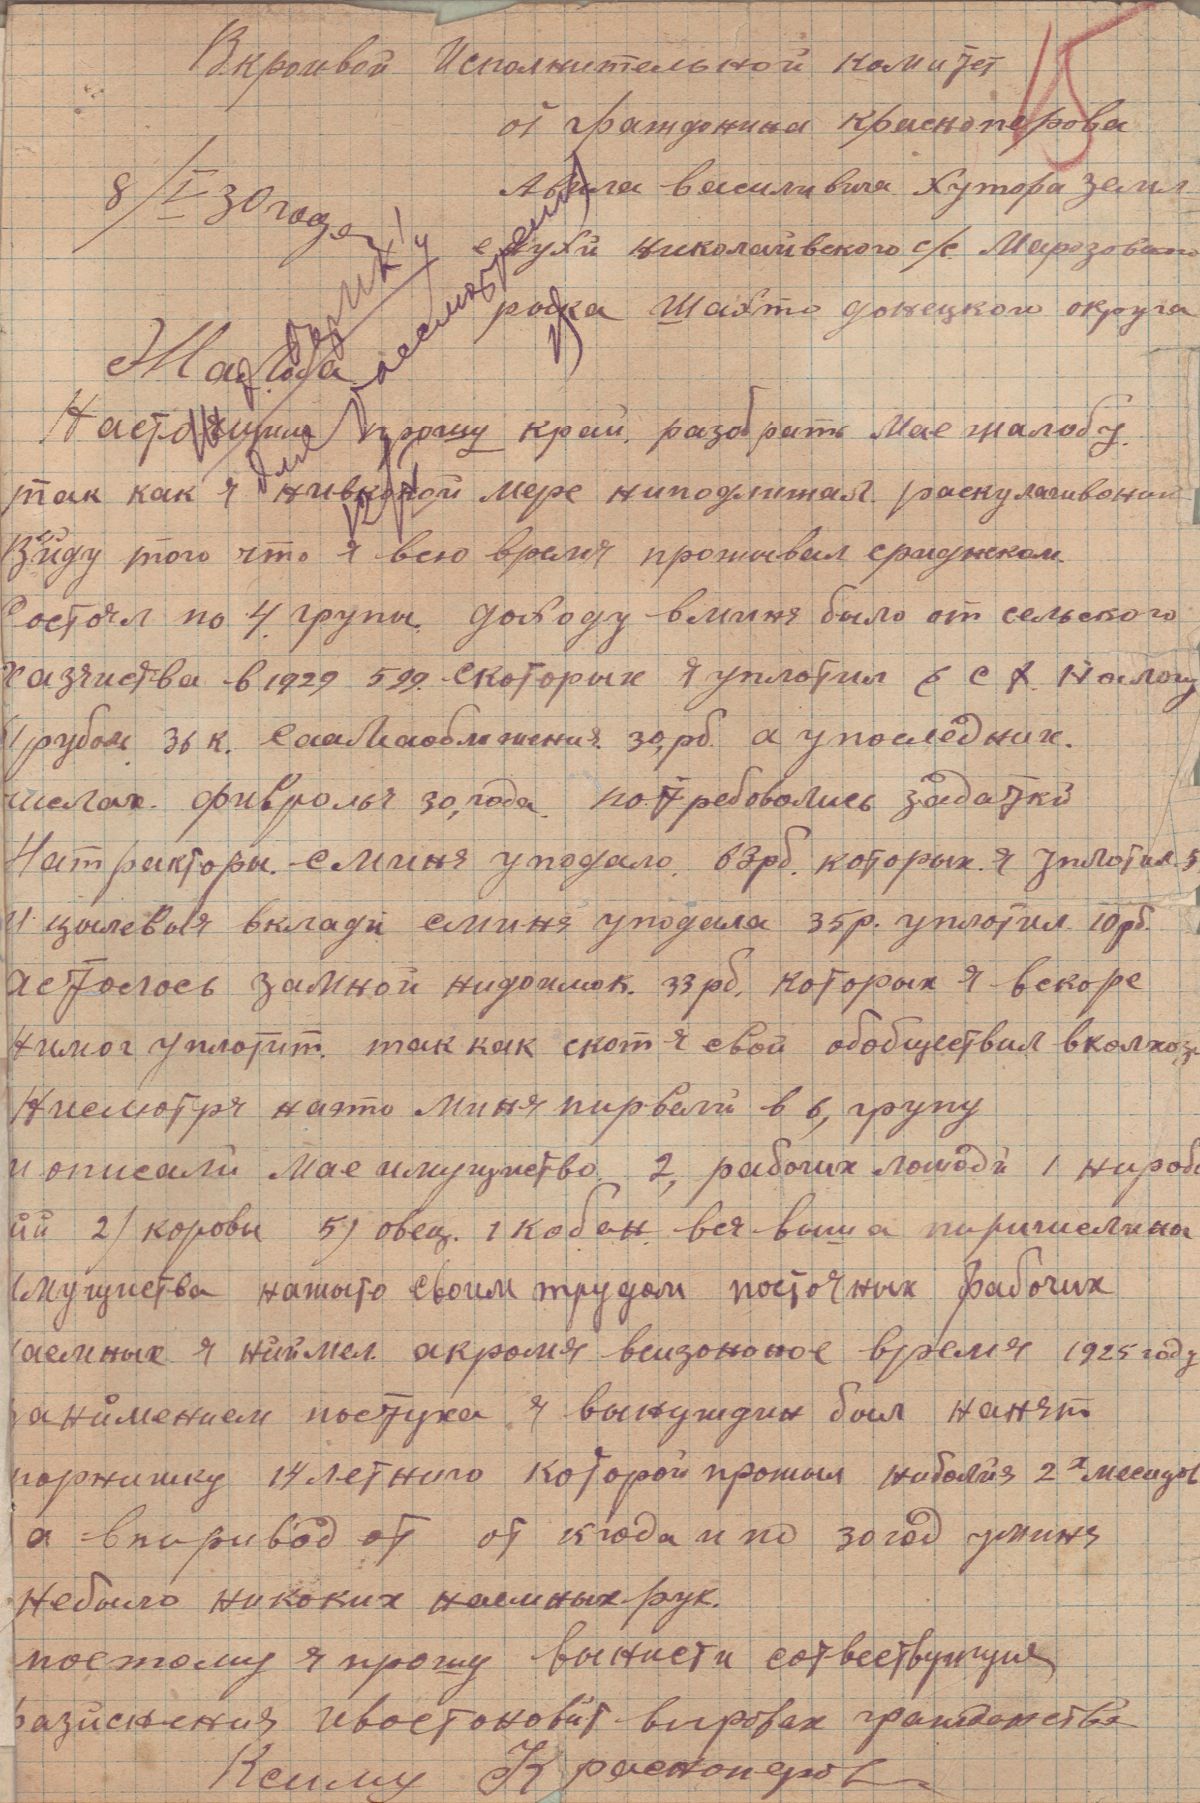 Вкроивой Исполнительной комитет
15
от граждонина краснопёрова
8/I 30 года
василивича Хутора земл
николаивского с/с Марозовского
раёна Шахто донецкого округа
Жалоба
для рассмотрения
Настоящим прошу край. разобрать Мае жалобу.
так как я нивкокой мере ниподлижал раскулачивонию
Ввиду того что я всю время проживал сридняком.
Состоял по 4 групы. доходу вминя было от сельского
хазяиства в 1929 599. скоторых я уплотил с х налогу
рубом 36 к. Саамаобложения 30, рб. а упоследних.
числах. фивролья 30, года. потребоволись задатки
Натракторы. сминя уподало. 83рб. которых я уплотил 5
и цылевыя вклади сминя уподала 35р. уплотил 10рб.
астолось замной нидоимок. 33 рб. которых я вскоре
нимог уплотит. так как скот я свой обобществил вколхоз
Нисмотря нато миня пирвели в 6, групу
и описали мае имущиство. 2, рабочих лошоди 1 нироб
ий 2) коровы 5) овец. 1 кобан. вся выша пиричислина
имущиства нажыто своим трудом постоянных рабочих
наемных я нийимел. акромя всизононое время 1925 году
занийменнием постуха я вынуждин был нанят
порнишку 14 летнего которой прожыл ниболия 2х месидов
а впиривод от от к года и по 30 год уминя
небыло никоких наемных рук.
поетому я прошу вынисти сотвествующия
разиснения ивостоновит вировах гражданства
Ксиму Красноперов